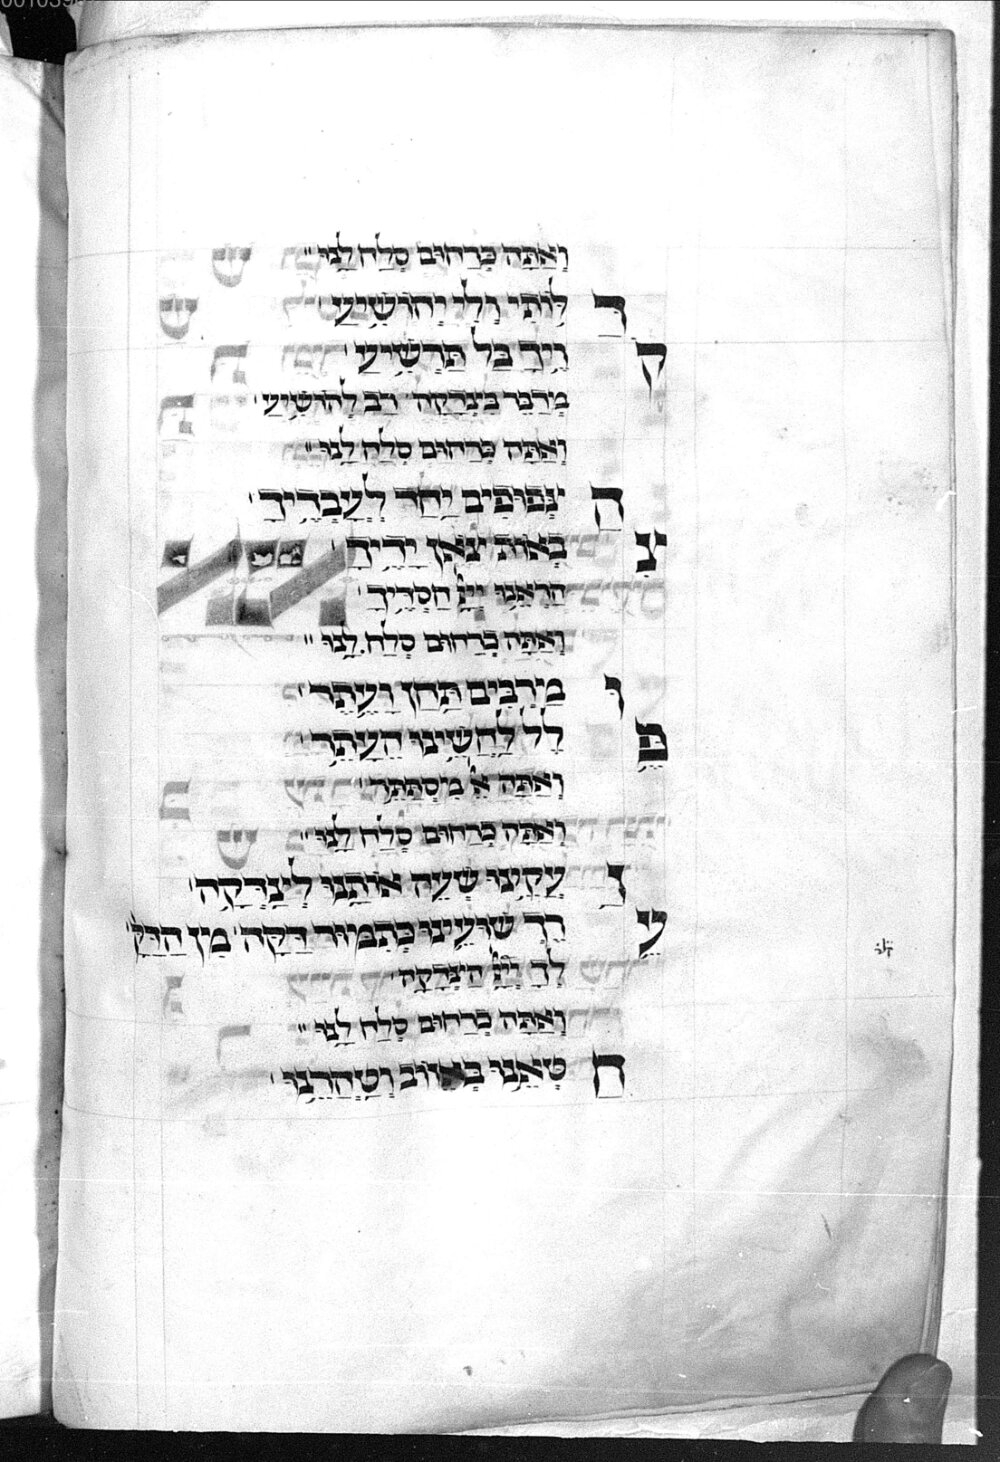 וְאַתָּה כְּרַחוּם סְלַח לָנוּ׃
דַּ לּוֹתִי וְלִי יְהוֹשִׁיעַ׳
קֹ וֶיךָ בַּל תַּרְשִׁיעַ׳
מְדַבֵּר בִּצְדָקָה רַב לְהוֹשִׁיעַ׳
וְאַתָּה כְּרַחוּם סְלַח לָנוּ׃
הַ נִּצָּפִים יַחַד לַעֲבָדֶיךָ׳
צֹ בְּאוֹת צֹאן יָדֶיךָ׳
הַרְאֵנוּ יְיָ חַסְדֶּיךָ׳
וְאַתָּה כְּרַחוּם סְלַח לָנוּ׃
וּ מֵרַבִּים תֵּחֶן וַעֲתֵר׳
פְּ לַל לַחֲשֵׁינוּ הֵעָתֵר׳
וְאַתָּה אַל מִסְתַּתֵּר׳
וְאַתָּה כְּרַחוּם סְלַח לָנוּ׃
נַ עֲקֵינוּ שְׁעֵה אוֹתָנוּ לְיַצְדְּקָה׳
עֲ רָךְ שׁוּעֵינוּ כְּתִמּוּר דַּקָּה׳ מִן הַדַּקָּה׳
לְךָ יְיָ הַצְּדָקָה׳
וְאַתָּה כְּרַחוּם סְלַח לָנוּ׃
חַ טְּאֵנוּ בְּאֵזוֹב וְטַהֲרֵנוּ׳